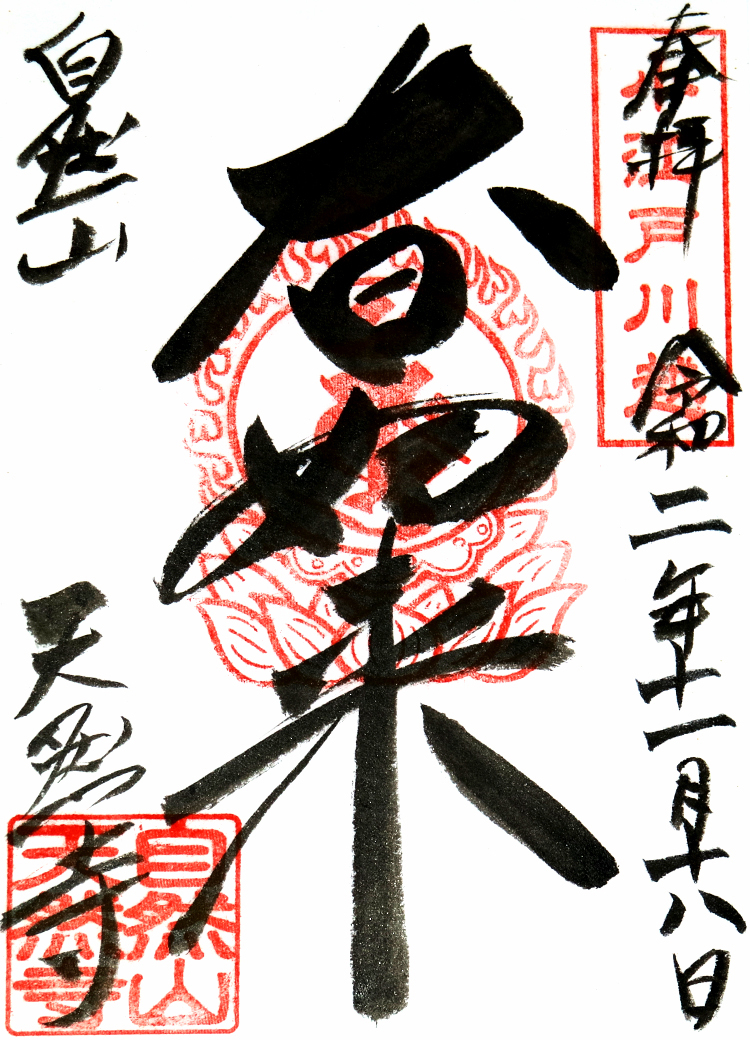 奉拝
令和二年十一月十八日
小江戸川越
大日如来
自然山
天然寺
自然山
天然寺